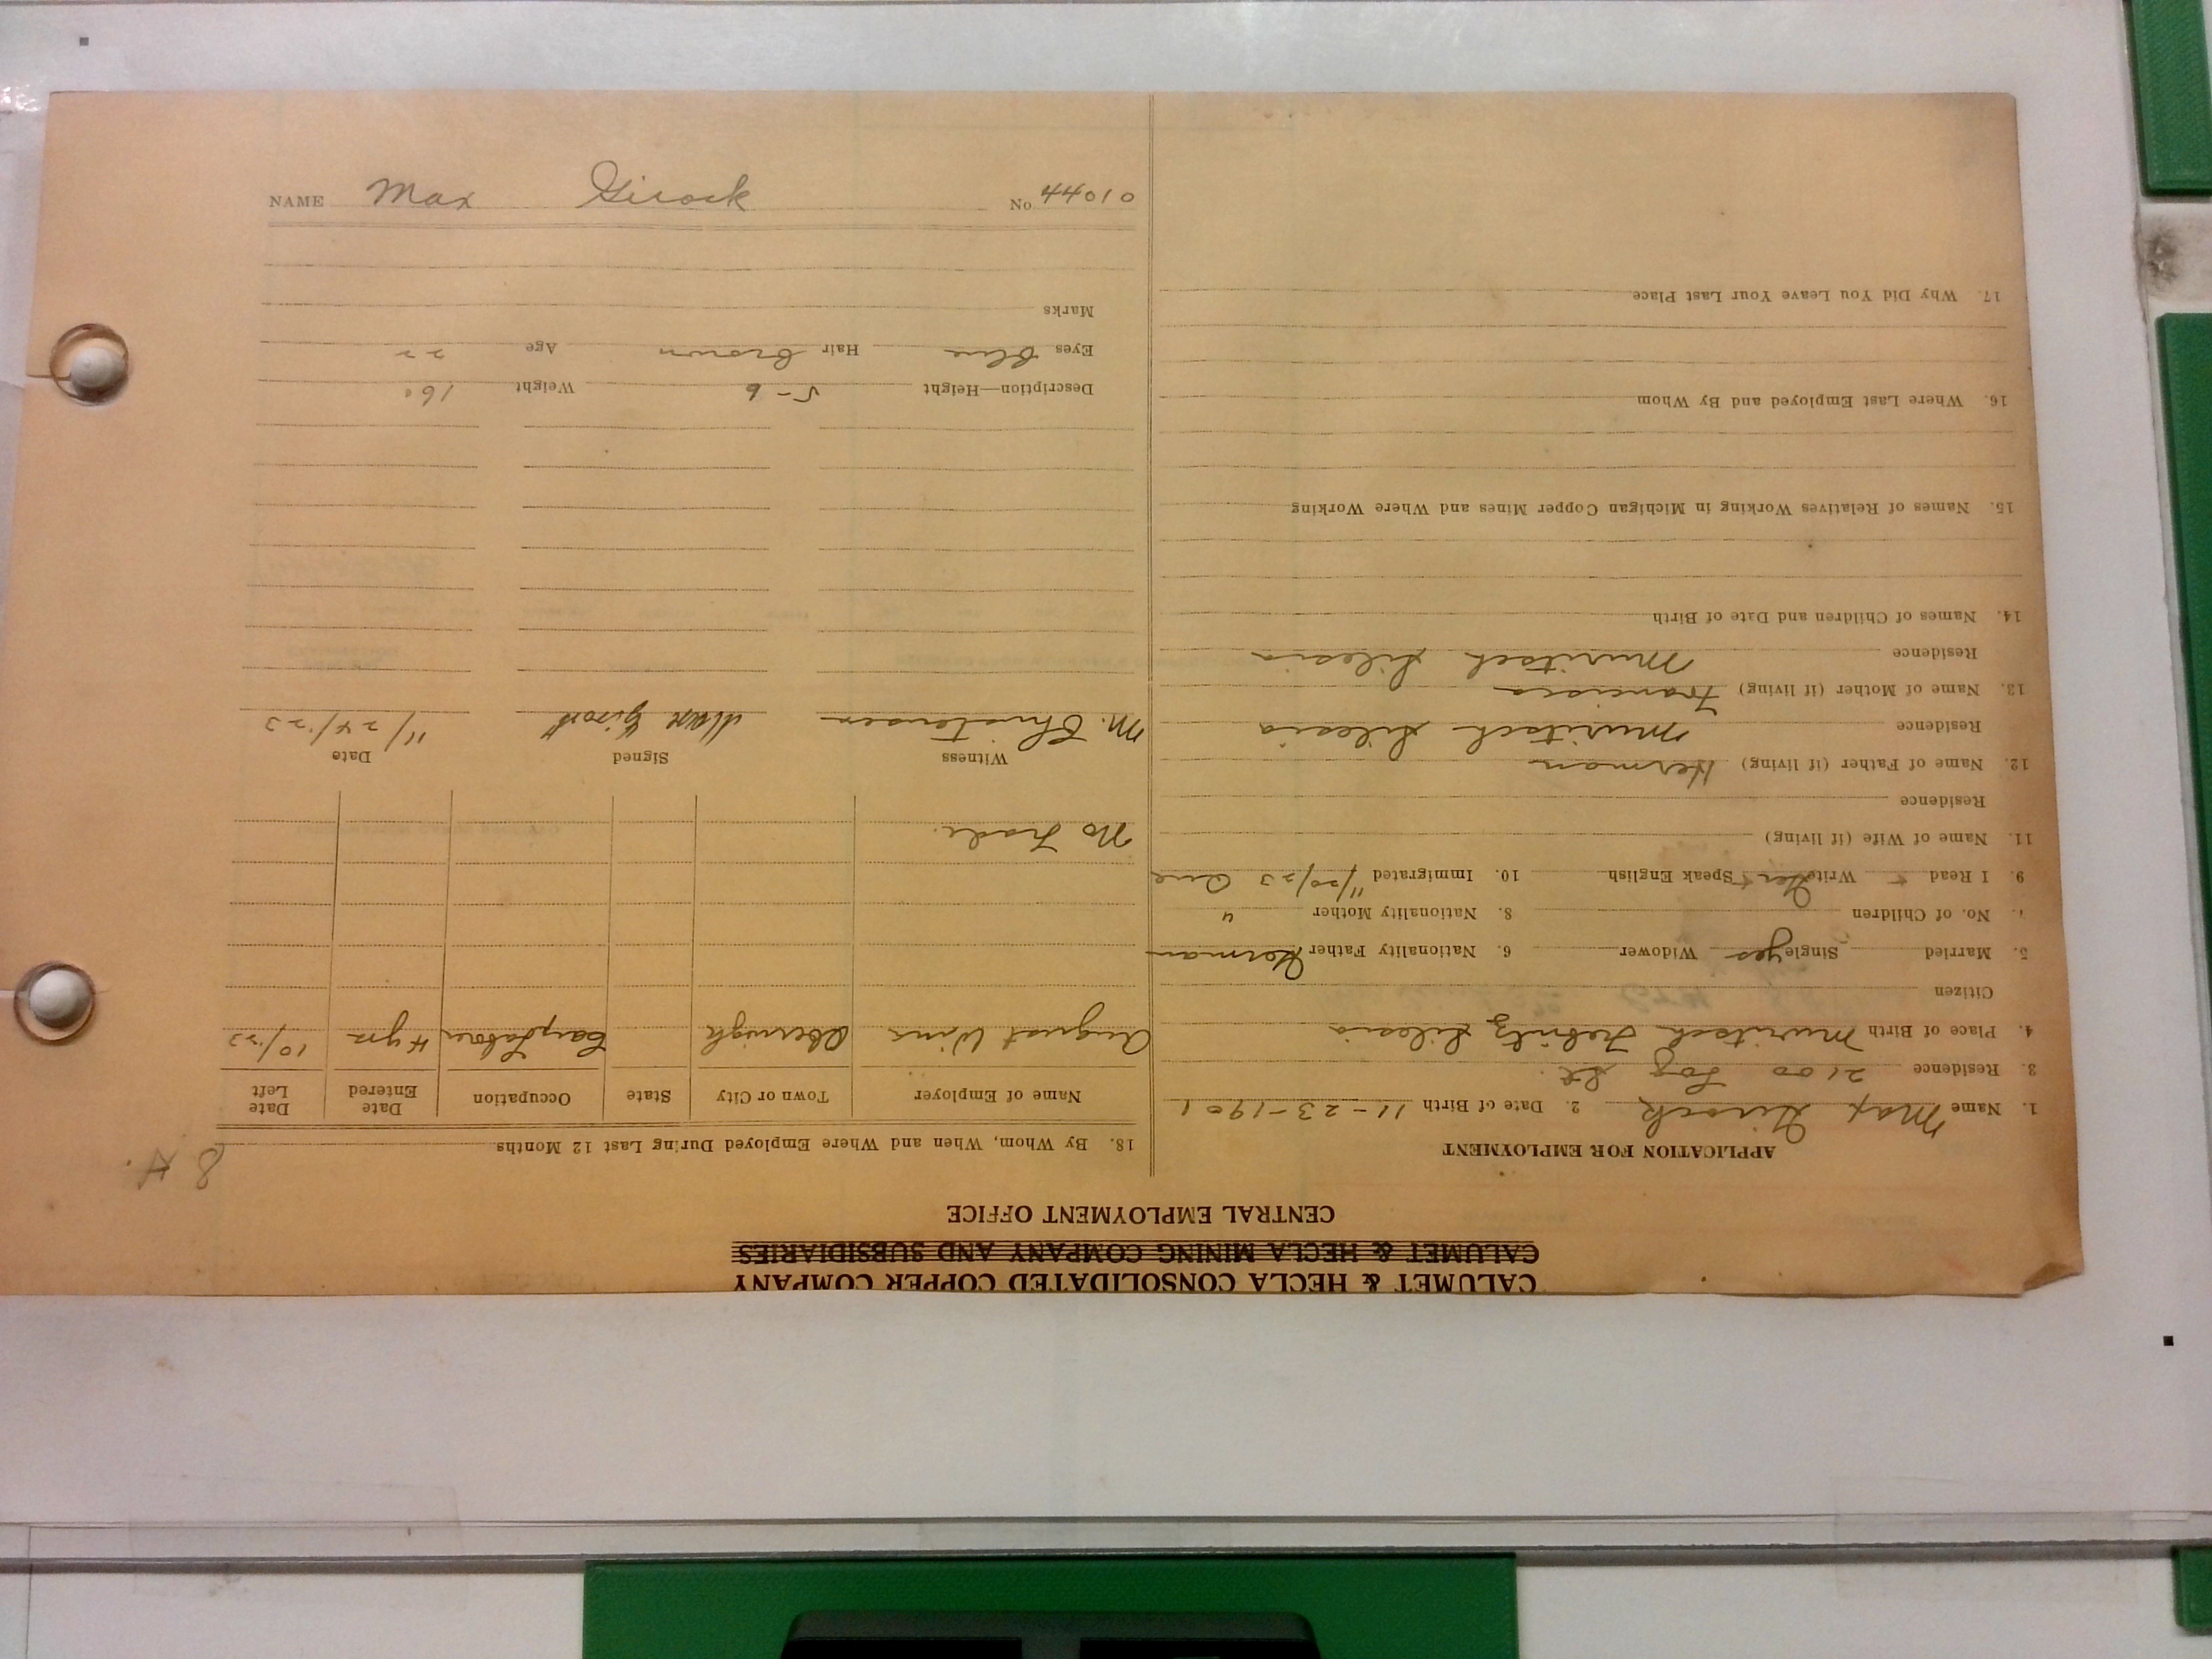 CALUMET & HECLA CONSOLIDATED COPPER COMPANY
CALUMET & HECLA MINING COMPANY AND SUBSIDIARIES
CENTRAL EMPLOYMENT OFFICE
APPLICATION FOR EMPLOYMENT
1. Name Max Girock 2. Date of Birth 11-23-1901
3. Residence 2100 Log St.
4. Place of Birth Muritsch Trebnitz Silesia
Citizen
5. Married Single yes Widower 6. Nationality Father German
7. No. of Children 8. Nationality Mother "
9. I Read Write Ger Speak English 10. Immigrated 11/20/23
11. Name of Wife (if living)
Residence
12. Name of Father (if living) Herman
Residence Muritsch Silesia
13. Name of Mother (if living) Francisca
Residence Muritsch Silesia
14. Names of Children and Date of Birth
15. Names of Relatives Working in Michigan Copper Mines and Where Working
16. Where Last Employed and By Whom
17. Why Did You Leave Your Last Place
8 H.
18. By Whom, When and Where Employed During Last 12 Months
Name of Employer Town or City State Occupation Date Entered Date Left
August Wins Obernigk Labor 4 yrs 10/23
No Trade.
Witness Signed Date
M. Christensen Max Girock 11/24/23
Description—Height 5-6 Weight 160
Eyes Blue Hair Brown Age 22
Marks
NAME Max Girock No. 44010